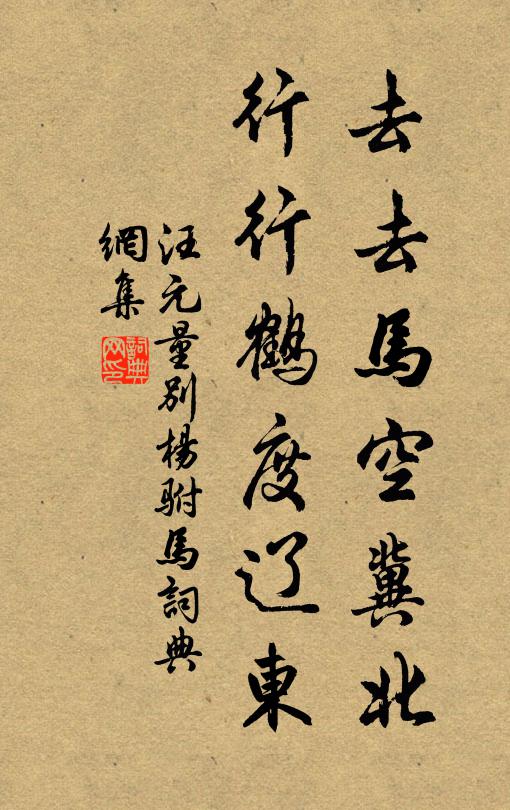 去去馬空冀北
行行鶴度辽東
汪元量别楊駙馬詞典
網集
詞典
网印